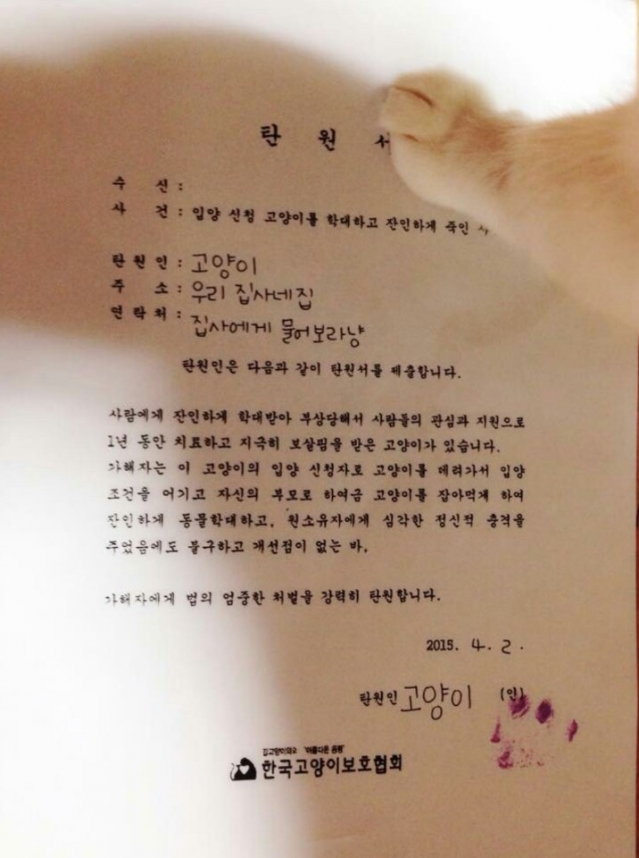 탄 원 서
수 신 :
사 건 : 입양 신청 고양이를 학대하고 잔인하게 죽인
탄원인 : 고양이
주 소 : 우리 집사네집
연락처 : 집사에게 물어보라냥
탄원인은 다음과 같이 탄원서를 제출합니다.
사람에게 잔인하게 학대받아 부상당해서 사람들의 관심과 지원으로
1년 동안 치료하고 지극히 보살핌을 받은 고양이가 있습니다.
가해자는 이 고양이의 입양 신청자로 고양이를 데려가서 입양
조건을 어기고 자신의 부모로 하여금 고양이를 잡아먹게 하여
잔인하게 동물학대하고, 원소유자에게 심각한 정신적 충격을
주었음에도 불구하고 개선점이 없는 바,
가해자에게 법의 엄중한 처벌을 강력히 탄원합니다.
2015. 4. 2.
탄원인 고양이 (인)
길고양이와의 '아름다운 공존'
한국고양이보호협회